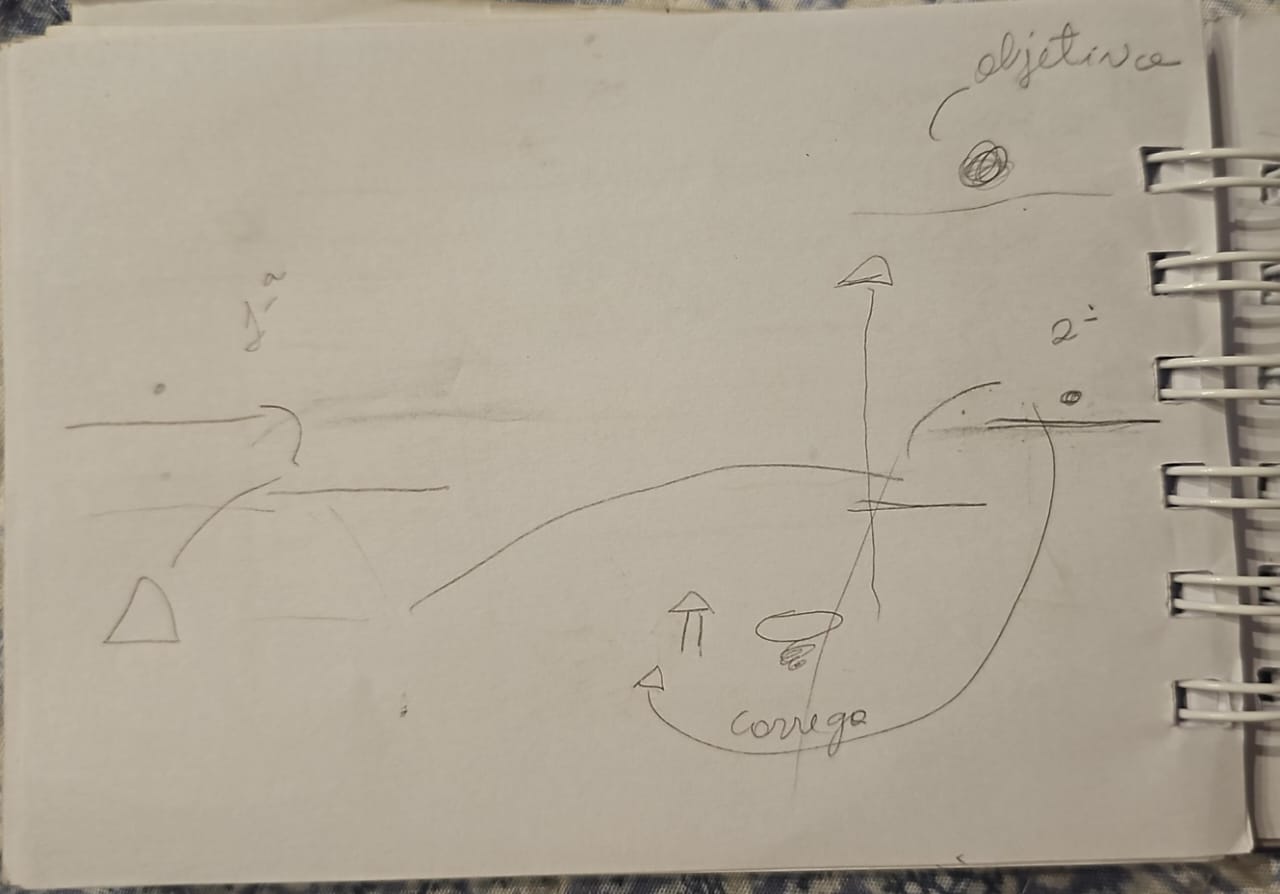 objetivo
1ª
2ª
carrega